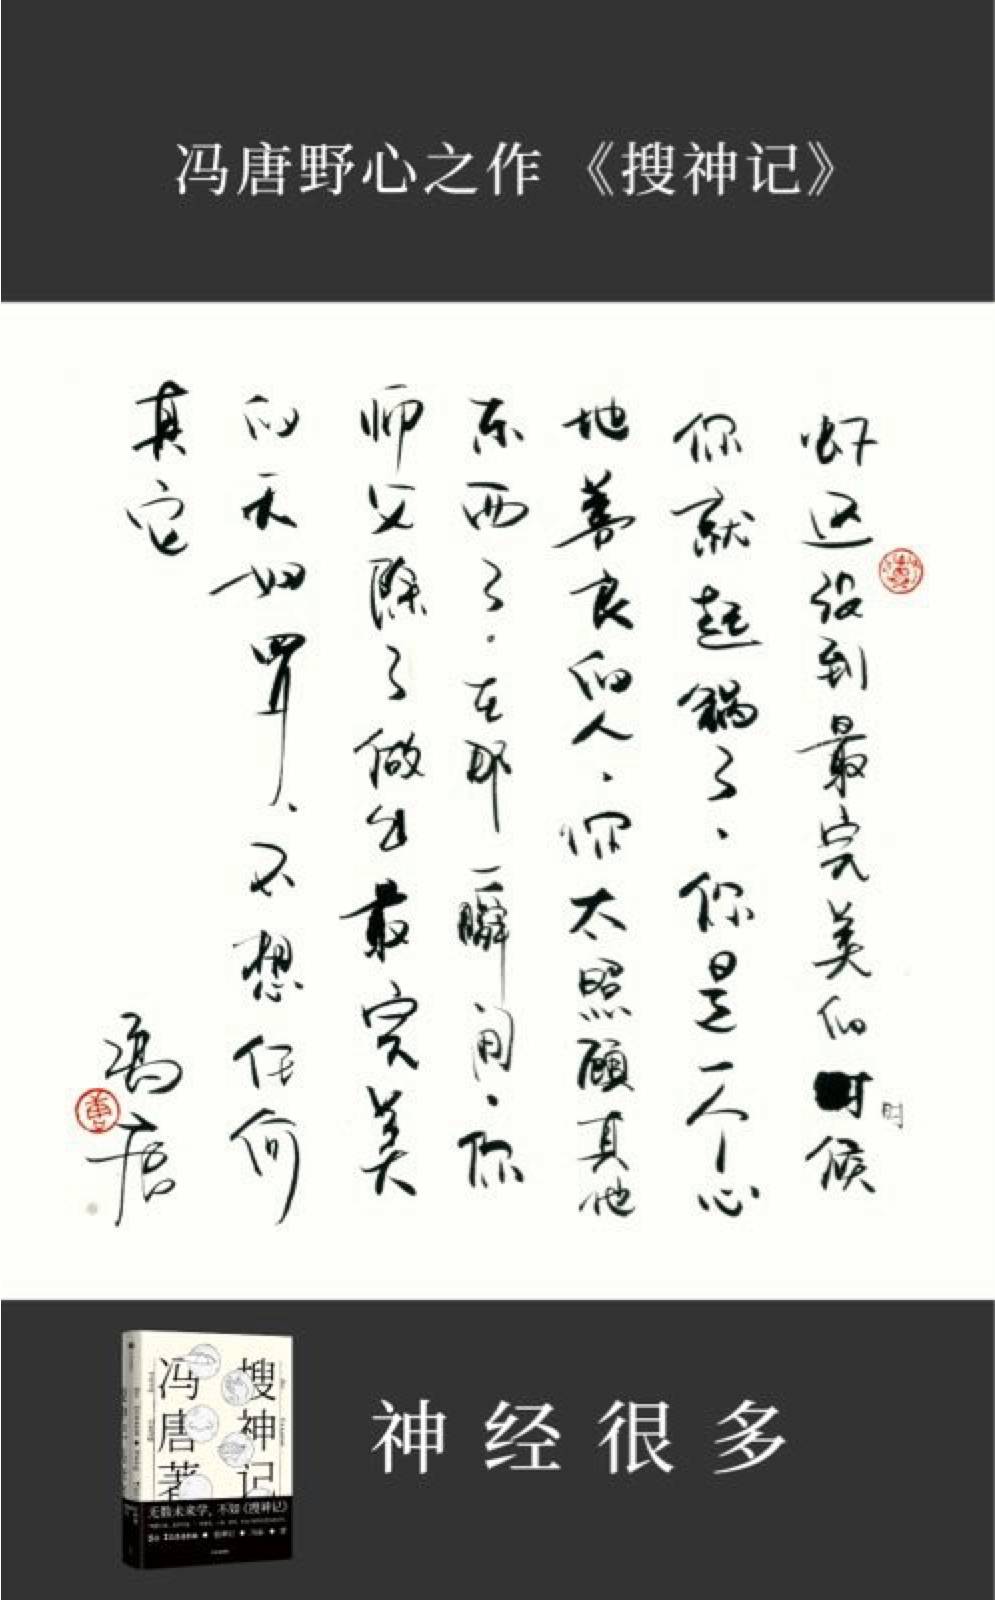 冯唐野心之作《搜神记》
虾还没到最完美的时候
你就起锅了、你是一个心
地善良的人、你太照顾其他
东西了。在那一瞬间、你
师父除了做出最完美
的天妇罗、不想任何
其它
冯唐
神经很多
搜神记
冯唐著
无数未来学，不如《搜神记》